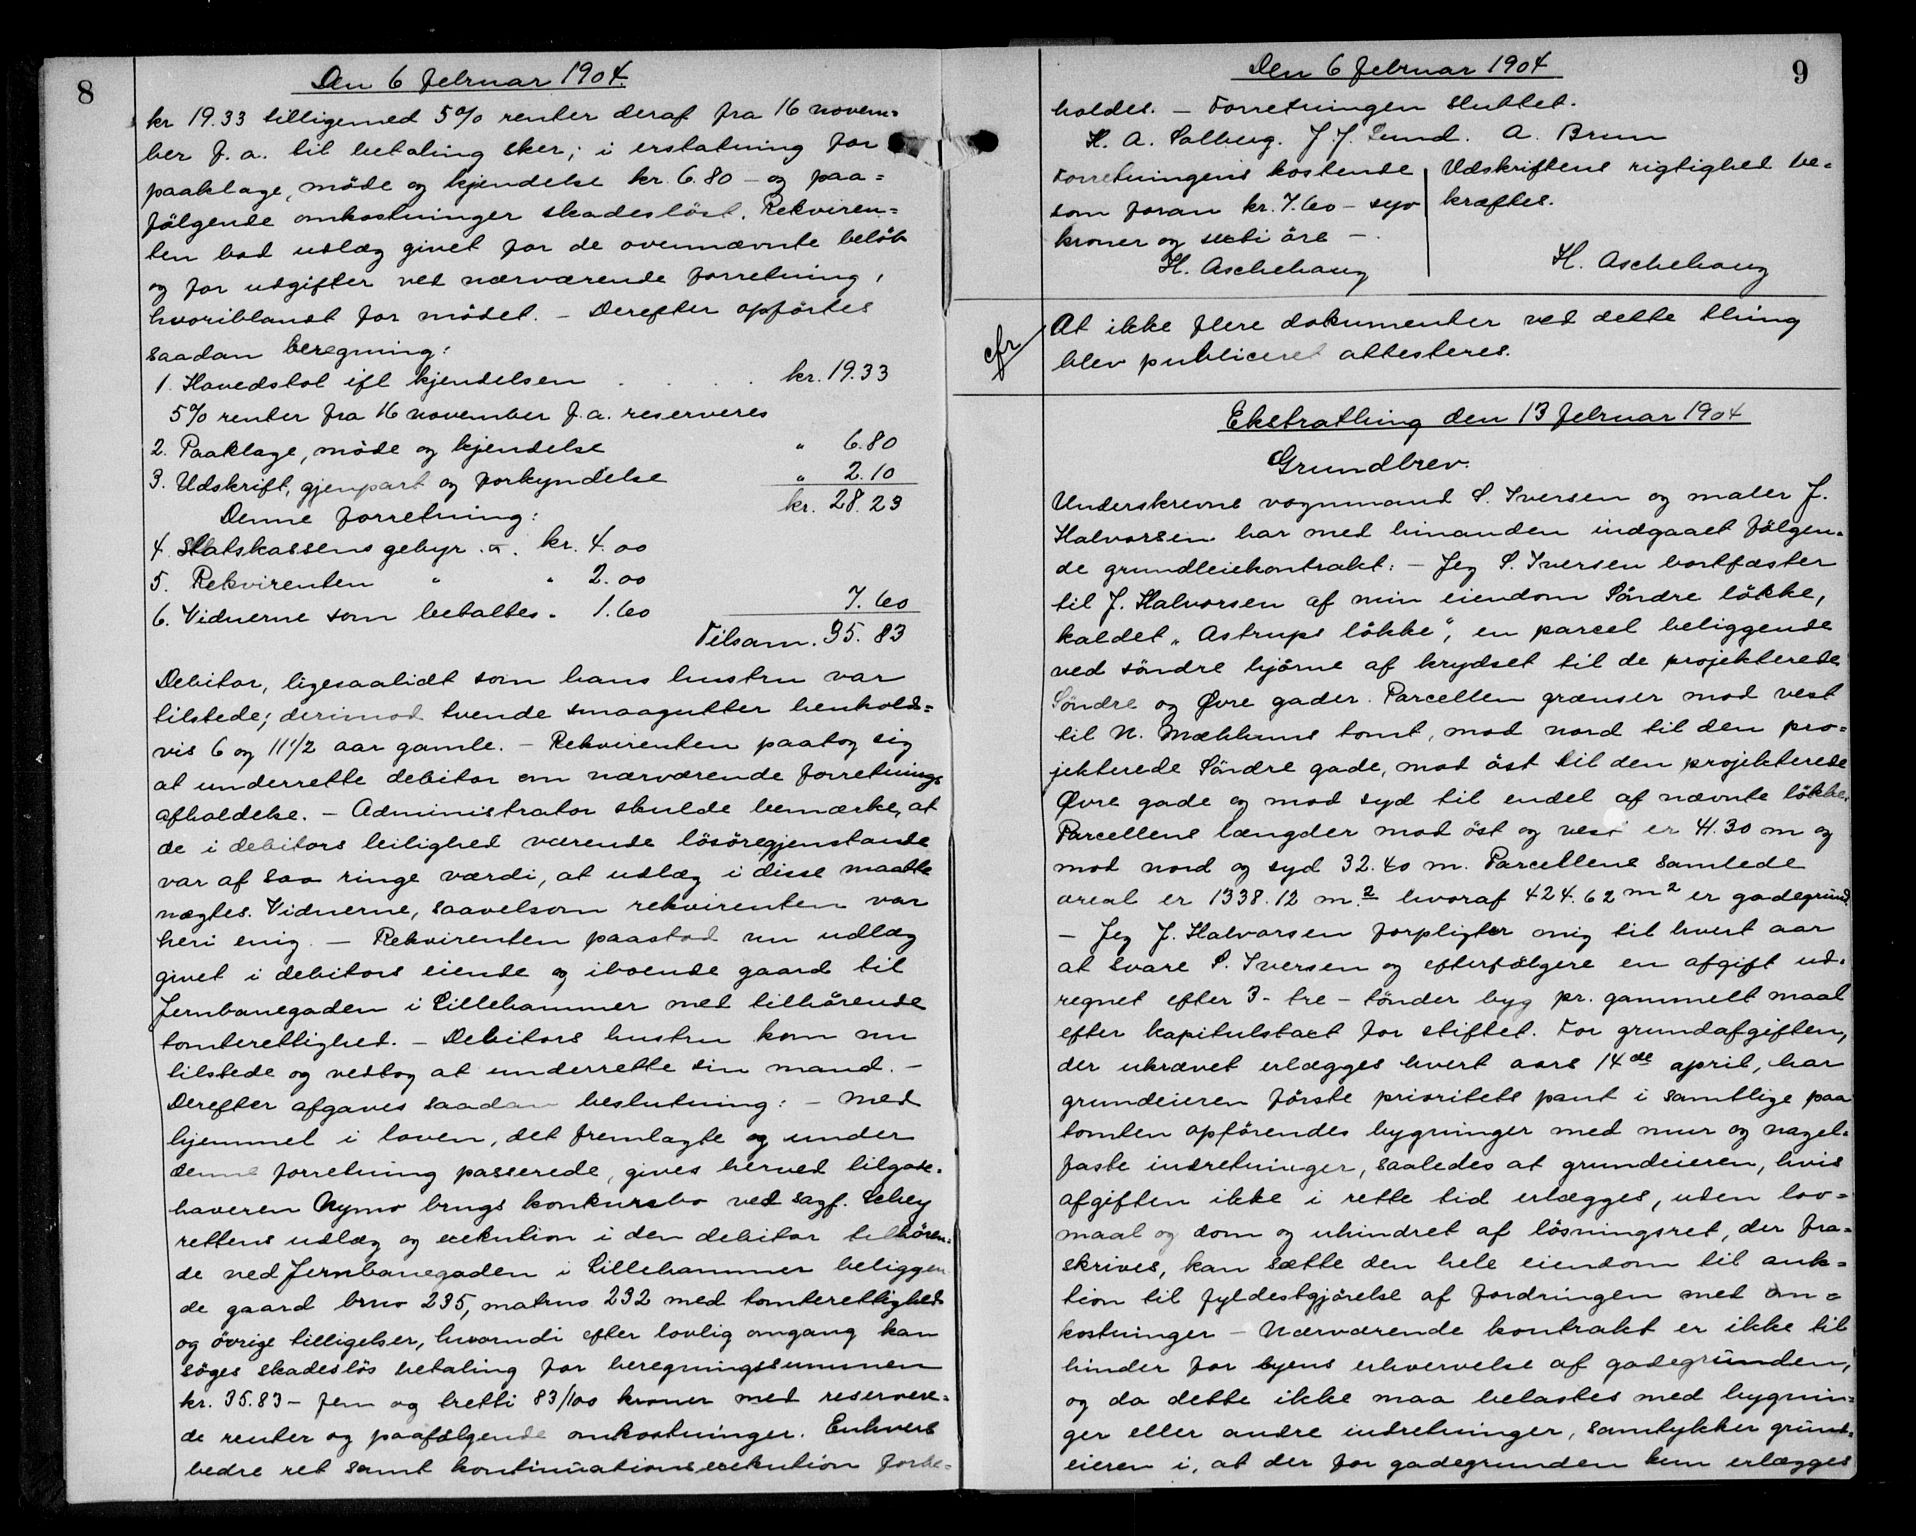 8
Den 6 februar 1904.
kr 19.33 tilligemed 5% renter deraf fra 16 novem-
ber f. a. til betaling sker; i erstatning for
paaklage, møde og kjendelse kr. 6.80 - og paa-
følgende omkostninger skadesløst. Rekviren-
ten bad udlæg givet for de ovennævnte beløb
og for udgifter ved nærværende forretning,
hvoriblandt for mødet. - Derefter opførtes
saadan beregning:
1. Hovedstol ifl kjendelsen . . . . kr. 19.33
5% renter fra 16 november f. a. reserveres
2. Paaklage, møde og kjendelse " 6.80
3. Udskrift, gjenpart og forkyndelse " 2.10
Denne forretning: kr. 28.23
4. Statskassens gebyr . kr. 4.00
5. Rekvirenten " " 2.00
6. Vidnerne som betaltes " 1.60 7.60
Tilsam. 35.83
Debitor, ligesaalidt som hans hustru var
tilstede; derimod tvende smaagutter henholds-
vis 6 og 11 1/2 aar gamle. - Rekvirenten paatog sig
at underrette debitor om nærværende forretnings
afholdelse. - Administrator skulde bemærke, at
de i debitors leilighed værende løsøregjenstande
var af saa ringe værdi, at udlæg i disse maatte
nægtes. Vidnerne, saavelsom rekvirenten var
heri enig. - Rekvirenten paastod nu udlæg
givet i debitors eiende og iboende gaard til
Jernbanegaden i Lillehammer med tilhørende
tomterettighed. - Debitors hustru kom nu
tilstede og vedtog at underrette sin mand. -
Derefter afgaves saadan beslutning: - Med
hjemmel i loven, det fremlagte og under
denne forretning passerede, gives herved tilgode-
haveren Nymo brugs konkursbo ved sagf. Schey
rettens udlæg og exekution i den debitor tilhøren-
de ved Jernbanegaden i Lillehammer beliggen
de gaard brno 235, matrno 232 med tomterettighed
og øvrige tilligelser, hvorudi efter lovlig omgang kan
søges skadesløs betaling for beregningssummen
kr. 35.83 - fem og tretti 83/100 kroner med reservere-
de renter og paafølgende omkostninger. Enhvers
bedre ret samt kontinuationsexekution forbe-
9
Den 6 februar 1904
holdes. - Forretningen sluttet.
H. A. Solberg. J. J. Lund. A. Brun
Forretningens kostende
som foran kr. 7.60 - syv
kroner og sexti øre -.
H. Aschehoug
Udskriftens rigtighed be-
kræftes.
H. Aschehoug
cfr
At ikke flere dokumenter ved dette thing
blev publiceret attesteres.
Ekstrathing den 13 februar 1904
Grundbrev.
Underskrevne vognmand S. Iversen og maler J.
Halvorsen har med hinanden indgaaet følgen-
de grundleiekontrakt: - Jeg S. Iversen bortfæster
til J. Halvorsen af min eiendom Søndre løkke,
kaldet "Astrups løkke", en parcel beliggende
ved søndre hjørne af krydset til de projekterede
Søndre og Øvre gader. Parcellen grænser mod vest
til N. Mæhlums tomt, mod nord til den pro-
jekterede Søndre gade, mod øst til den projekterede
Øvre gade og mod syd til endel af nævnte løkke.
Parcellens længder mod øst og vest er 41.30 m og
mod nord og syd 32.40 m. Parcellens samlede
areal er 1338.12 m.2 hvoraf 424.62 m2 er gadegrund.
- Jeg J. Halvorsen forpligter mig til hvert aar
at svare S. Iversen og efterfølgere en afgift ud-
regnet efter 3 - tre - tønder byg pr. gammelt maal
efter kapitulstaxt for stiftet. For grundafgiften,
der ukrævet erlægges hvert aars 14de april, har
grundeieren første prioritets pant i samtlige paa
tomten opførendes bygninger med mur og nagel-
faste indretninger, saaledes at grundeieren, hvis
afgiften ikke i rette tid erlægges, uden lov-
maal og dom og uhindret af løsningsret, der fra-
skrives, kan sætte den hele eiendom til auk-
tion til fyldestgjørelse af fordringen med om-
kostninger - Nærværende kontrakt er ikke til
hinder for byens erhvervelse af gadegrunden,
og da dette ikke maa belastes med bygnin-
ger eller andre indretninger, samtykker grund-
eieren i, at der for gadegrunden kun erlægges